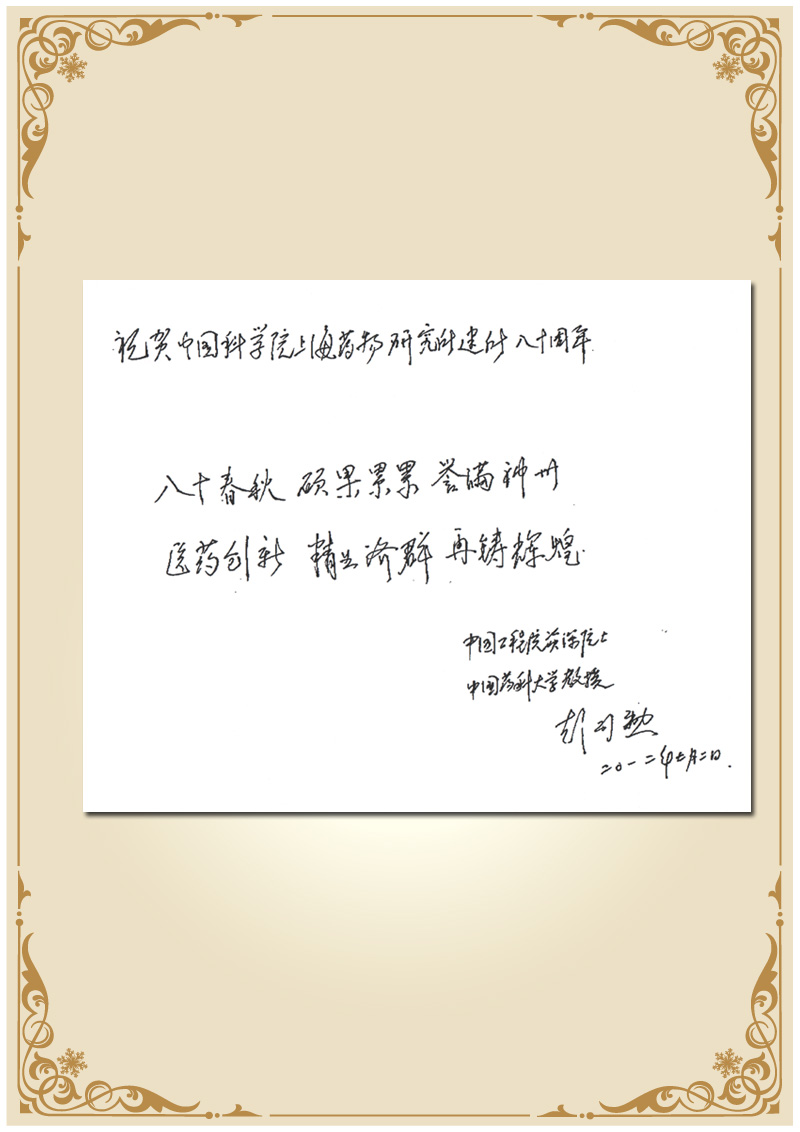 祝贺中国科学院上海药物研究所建所八十周年
八十春秋 硕果累累 誉满神州
医药创新 精益济群 再铸辉煌
中国工程院资深院士
中国药科大学教授
彭司勋
二〇一二年七月二日.